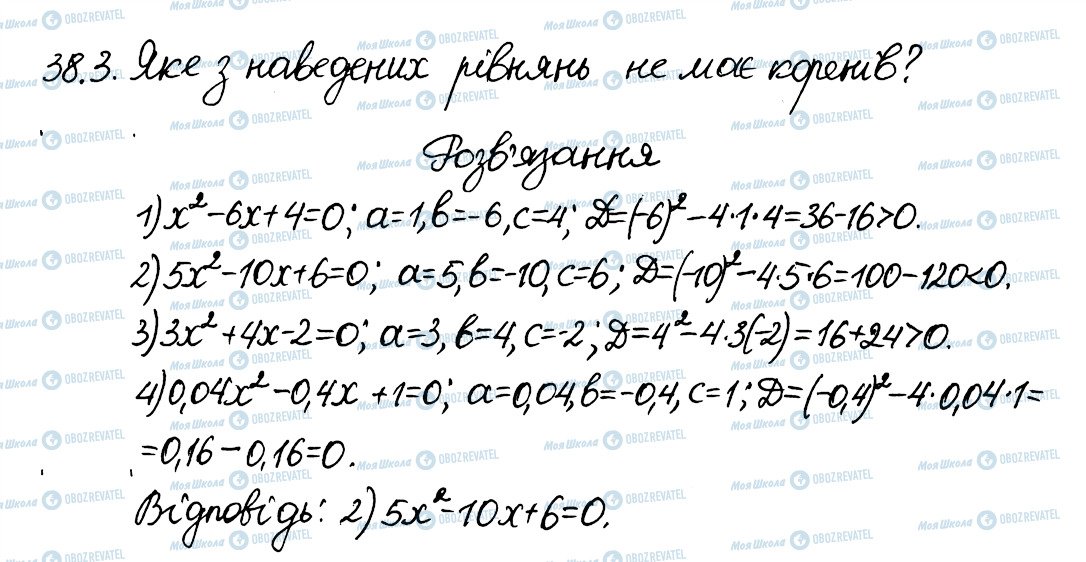 38.3. Яке з наведених рівнянь не має коренів?
Розв'язання
1) x²-6x+4=0; a=1, в=-6, c=4; D=(-6)²-4·1·4=36-16>0.
2) 5x²-10x+6=0; a=5, в=-10, c=6; D=(-10)²-4·5·6=100-120<0.
3) 3x²+4x-2=0; a=3, в=4, c=-2; D=4²-4·3(-2)=16+24>0.
4) 0,04x²-0,4x+1=0; a=0,04, в=-0,4, c=1; D=(-0,4)²-4·0,04·1=
=0,16-0,16=0.
Відповідь: 2) 5x²-10x+6=0.